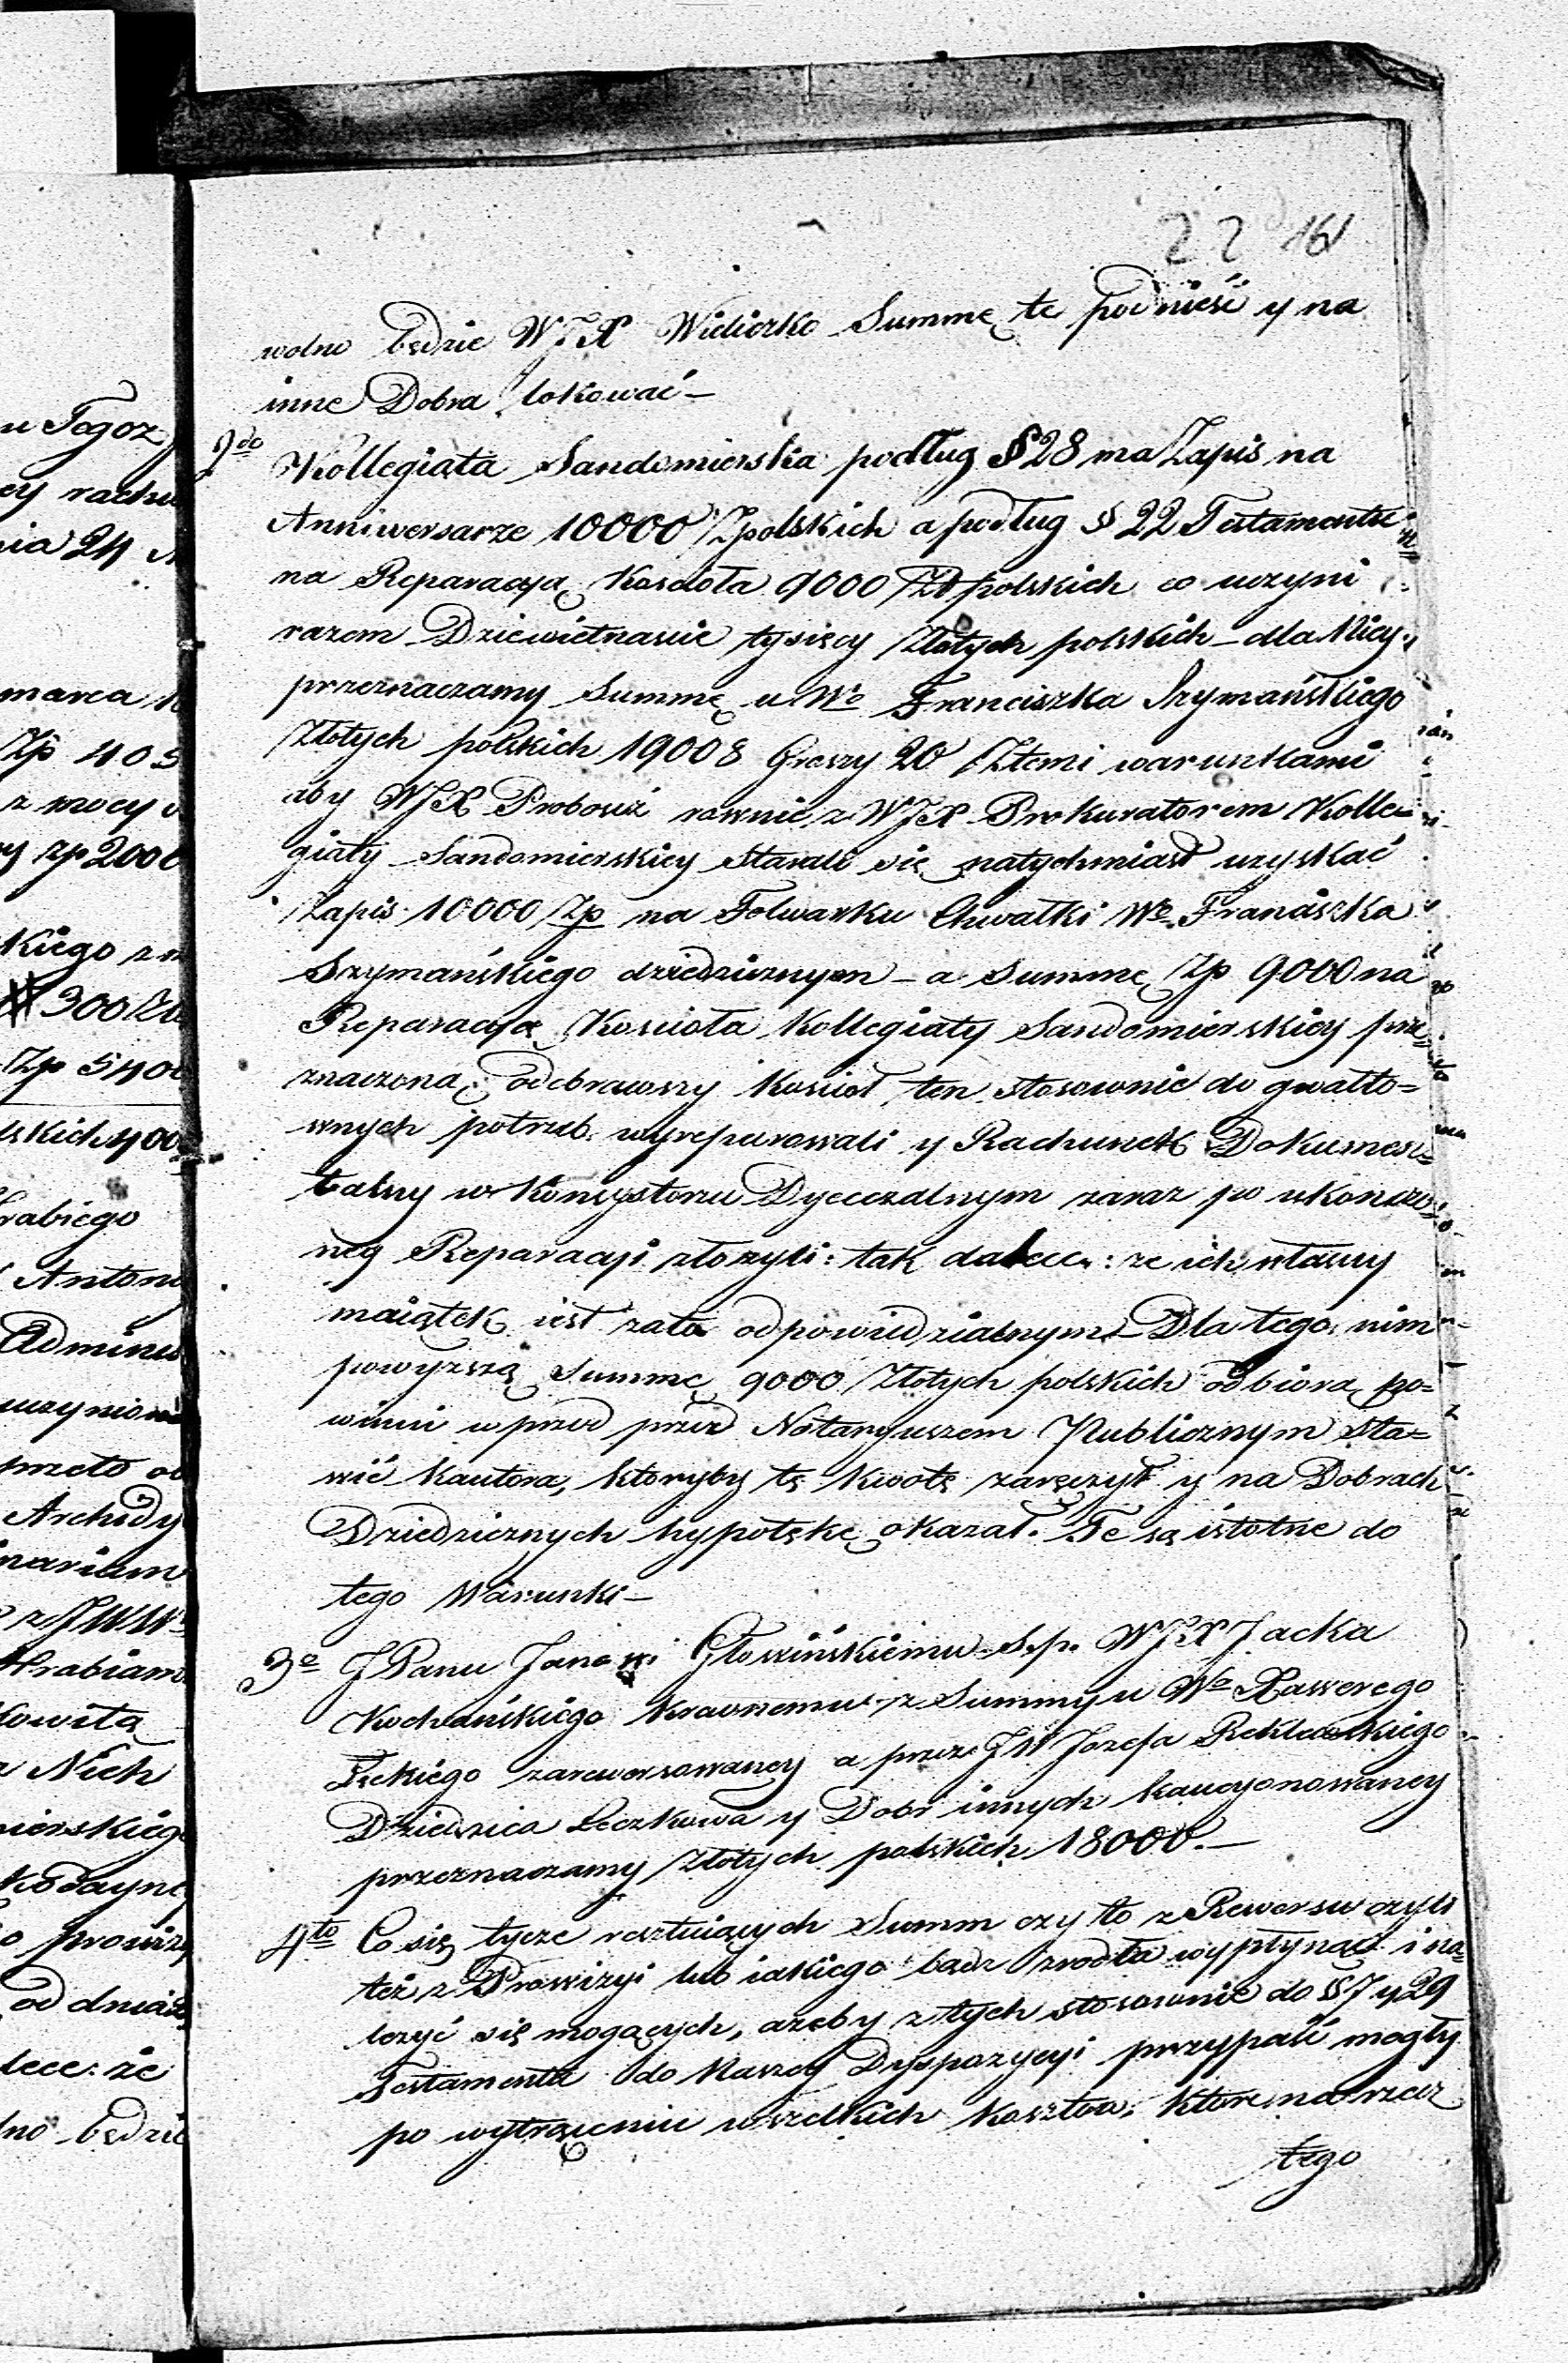 22 161
wolno będzie WJX Wieliczko Summę tę podnieść y na
inne Dobra lokować –
2do Kollegiata Sandomierska podług § 28 ma Zapis na
Anniwersarze 10000 Zpolskich a podług § 22 Testamentu
na Reparacyą Kościoła 9000 Złpolskich co uczyni
razem Dziewietnaście tysięcy Złotych polskich – dla Niey
przeznaczamy Summę u Wo Franciszka Szymańskiego
Złotych polskich 19008 Groszy 20 Ztemi warunkami
aby WJX Proboszcz rownie z WJX Prokuratorem Kolle=
giaty Sandomierskiey starali się natychmiast uzyskać
Zapis 10000 Zp na Folwarku Chwałki Wo Franciszka
Szymańskiego dziedzicznym – a Summę Zp 9000 na
Reparacyą Kościoła Kollegiaty Sandomierskiey prze=
znaczoną, odebrawszy Kościoł ten stosownie do gwałto=
wnych potrzeb wyreparowali y Rachunek Dokumen=
talny w Konsystorzu Dyecezalnym zaraz po ukonczo=
ney Reparacyi złożyli: tak dalece: że ich własny
maiątek iest zato odpowiedzialnym – Dla tego nim
powyższą Summę 9000 Złotych polskich odbiorą po=
winni wprzod przed Notaryuszem Publicznym sta=
wić Kautora, ktoryby tę Kwotę zaręczył y na Dobrach
Dziedzicznych hypotekę okazał. Te są istotne do
tego Warunki –
3o JPanu Janowi Głowińskiemu S.p. WJX Jacka
Kochańskiego Krewnemu z Summy u Wo Xawerego
Łęckiego zarewersowaney a przez JW Jozefa Reklewskiego
Dziedzica Leczkowa y Dobr innych kaucyonowaney
przeznaczamy Złotych polskich 18000. –
4to Co się tycze resztuiących Summ czy to z Rewersu czyli
też z Prowizyi lub iakiego bądz zrodła wypłynąć i na=
leżyć się mogących, ażeby z tych stosownie do § 7 y 29
Testamentu do Naszey Dyspozycyi przypaść mogły
po wytrąceniu wszelkich Kosztow, Ktore na rzecz
tego